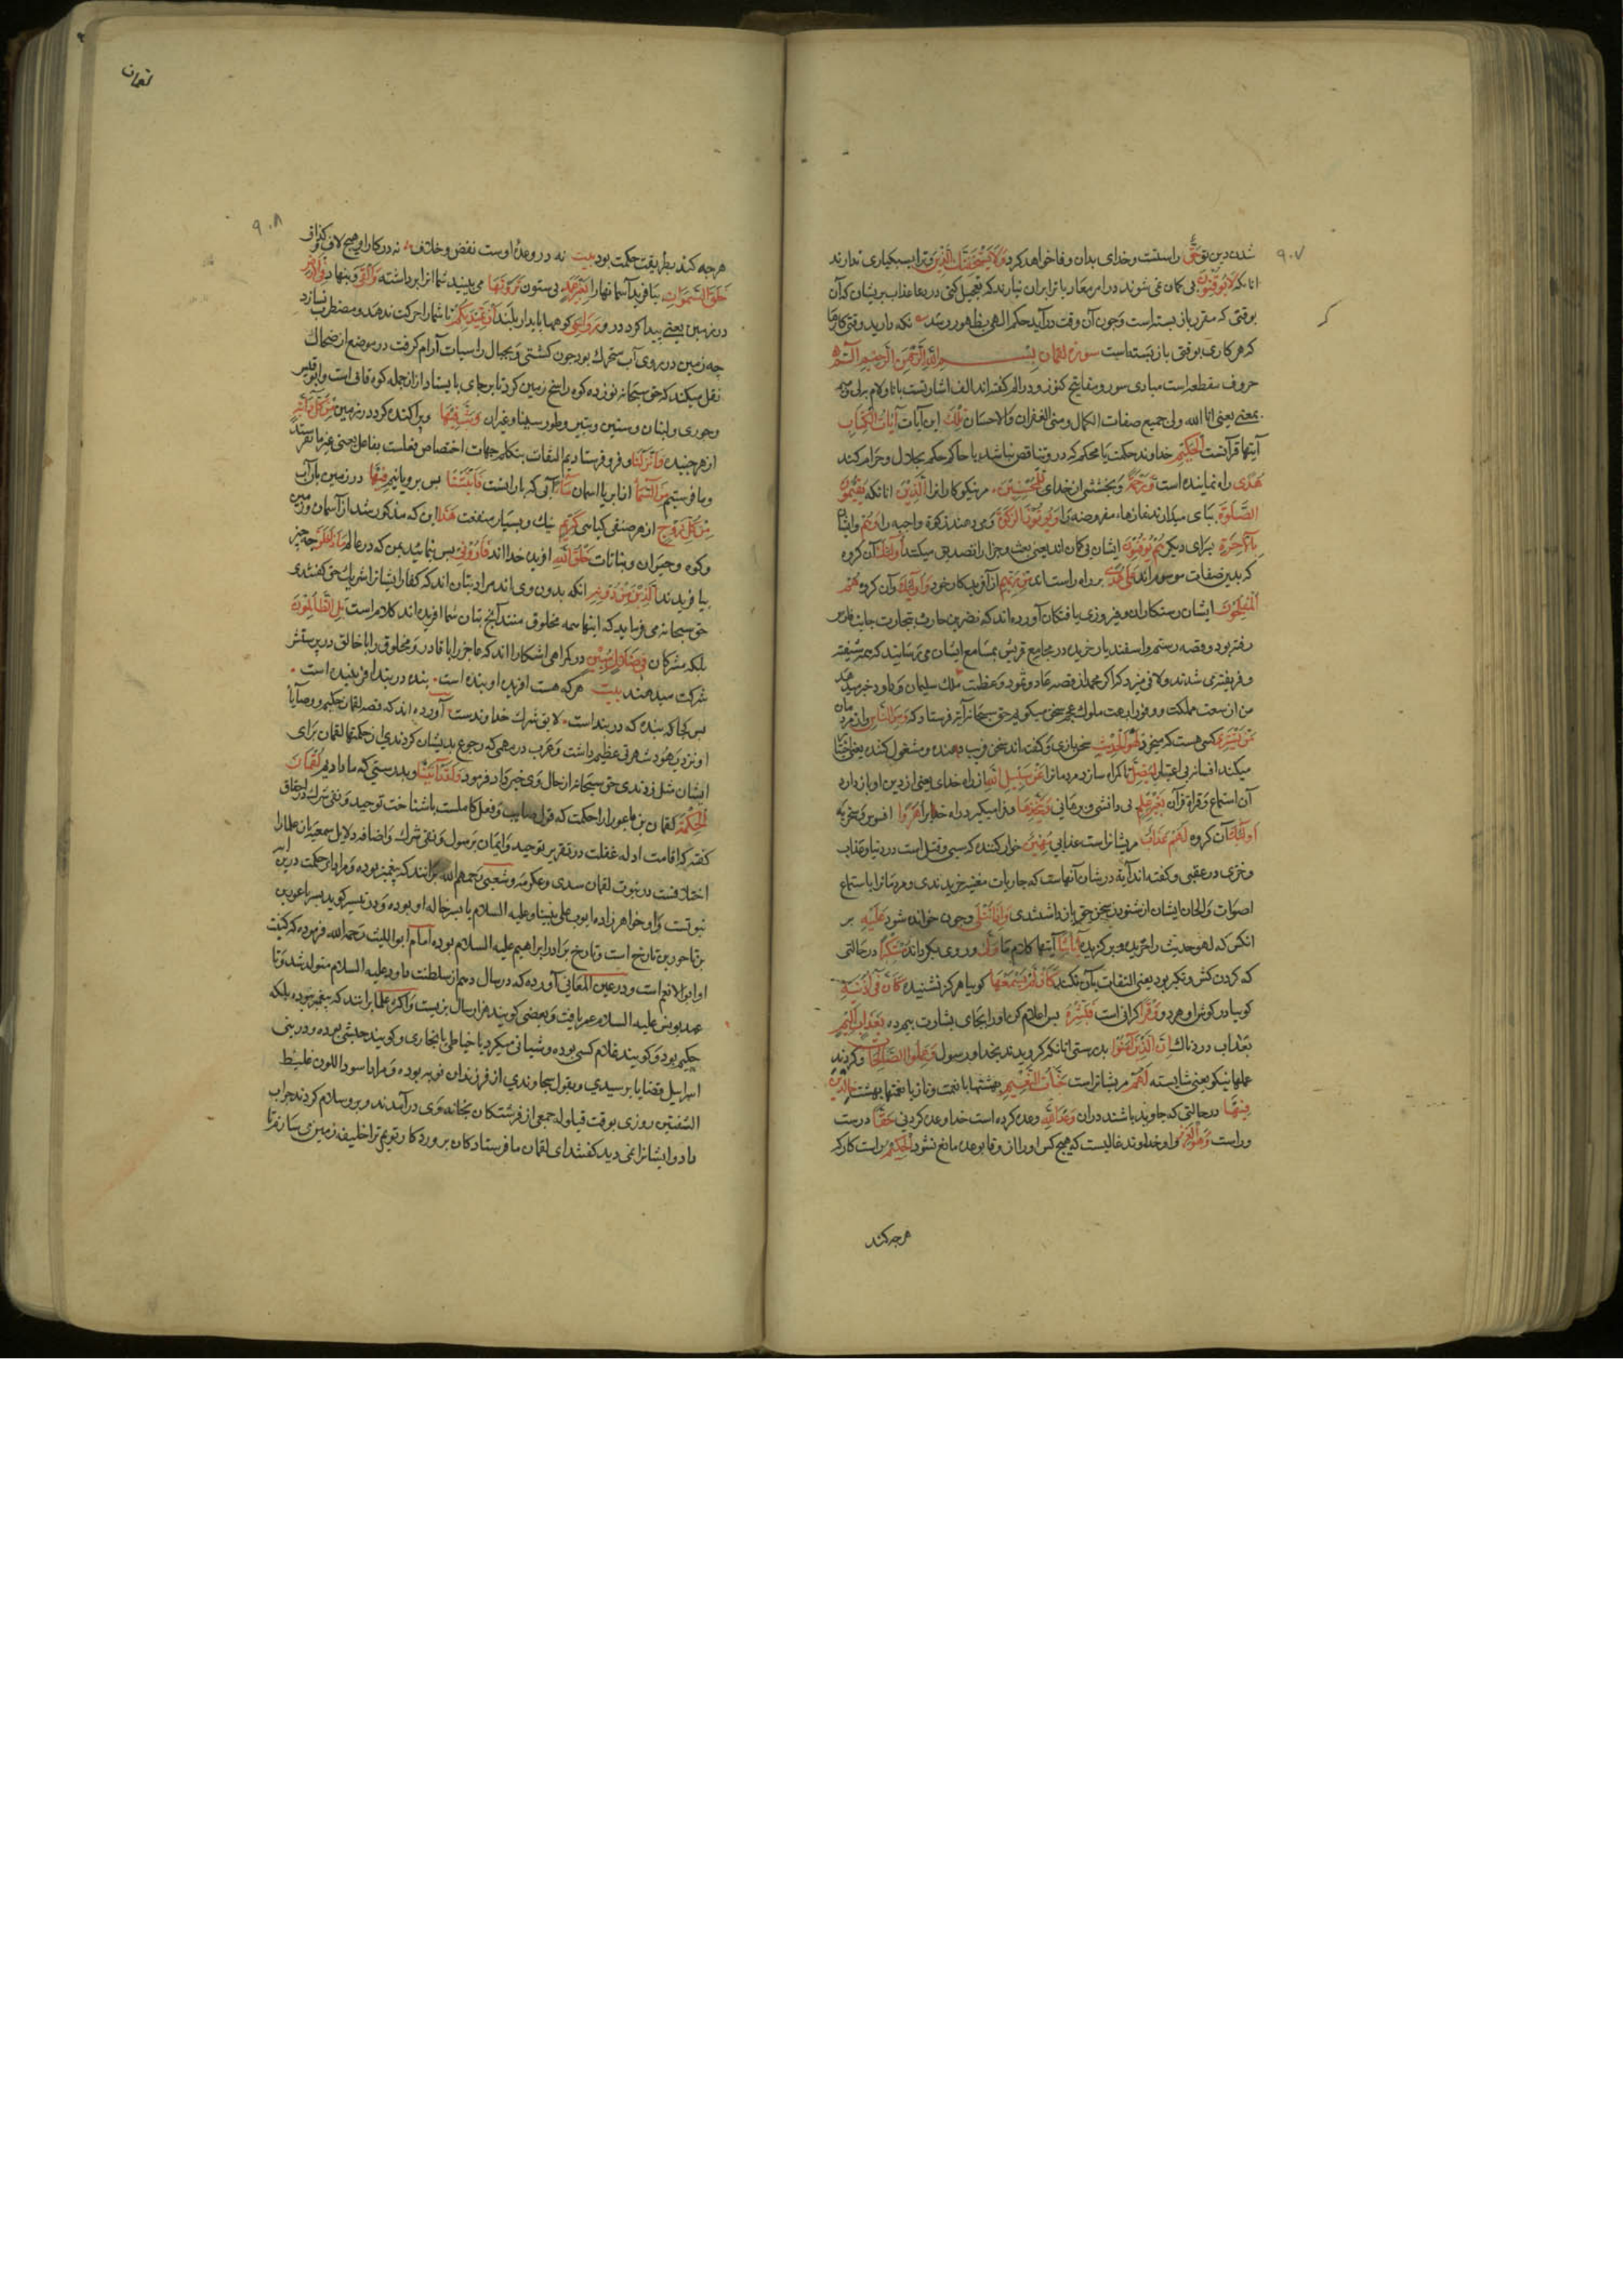 ٩٠٧
شدن دین تو حق راستست وخدای بدان وفا خواهد کرد ولا یستخفنک الذین وترا بسبکباری ندارند
انانکه لا یوقنون بی کمان نمی شوند
بوقتی که مقرر باز بسته است وچون آن وقت در آید حکم الهی بظهور رسد
که هر کاری بوقتی باز بسته است سورة لقمان بسم الله الرحمن الرحیم الم
حروف مقطعه است مبادی سور ومفاتیح کنوز ودر الم کفته اند الف اشارتست بانا ولام بلی ومیم
بمعنی یعنی انا الله ولی جمیع صفات الکمال ومنی الغفران والاحسان تلک این آیات آیات الکتاب
آیتها قرآنست الحکیم خداوند حکمت یا محکم که درو تناقض نباشد یا حاکم حکم بحلال وحرام کند
هدی راه نماینده است ورحمة وبخششی از خدای للمحسنین مر نیکوکارانرا الذین انانکه یقیمون
الصلوة بپای میدارند نمازهاء مفروضه را ویؤتون الزکوة ومی دهند زکوة واجبه را وهم وایشان
بالآخرة بسرای دیکر هم یوقنون ایشان بی کمان اند یعنی بعث وجزا را تصدیق میکنند اولئک آن کروه
که بدین صفات موصوف اند علی هدی بر راه راست اند من ربهم از آفریدکار خود واولئک وآن کروه هم
المفلحون ایشان رستکاران وفیروزی یافتکان آورده اند که نضر بن حارث بتجارت جانب فارس
رفته بود وقصه رستم واسفندیار خریده در مجامع قریش بمسامع ایشان می رسانید که همه شیفته
وفریفته ی شدند ولاف میزد که اکر محمد از قصه عاد وثمود وعظمت ملک سلیمان وداود خبر میدهد
من از سعت مملکت ووفور ابهت ملوک عجم سخن میکویم حق سبحانه آیة فرستاد که ومن الناس واز مردمان
من یشتری کسی هست که میخرد لهو الحدیث سخن بازی وکفته اند سخن فریب دهنده ومشغول کننده یعنی اختیار
میکند افسانه بی اعتبار لیضل تا کمراه سازد مردمانرا عن سبیل الله از راه خدای یعنی از دین او باز دارد
آن استماع وقراة قرآن بغیر علم بی دانشی ویتخذها وفرا میکیرد راه خدا را هزوا افسوس وسخریه
اولئک آن کروه لهم عذاب مر یشانراست عذابی مهین خوار کننده که سبی وقتل است در دنیا وعذاب
وخزی در عقبی وکفته اند آیة در شان آنهاست که جاریات مغنیه خریدندی ومردمانرا باستماع
اصوات والحان ایشان از شنودن سخن حق باز داشتندی واذا تتلی وچون خوانده شود علیه بر
انکس که لهو حدیث را خریده وبرکزیده آیاتنا آیتها کلام ما ولی ورو وی بکرداند مستکبرا در حالتی
که کردن کش ومتکبر بود یعنی التفات بآن نکند کان لم یسمعها کوییا هرکز نشنیده کان فی اذنیه
کوییا در کوشهاء او هر دو وقرا کرانی است فبشره پس اعلام کن اورا بجای بشارت بیم ده بعذاب الیم
بعذاب دردناک ان الذین آمنوا بدرستی انانکه کرویدند بخدا ورسول وعملوا الصالحات وکردند
عملها نیکو یعنی شایسته لهم مر یشانراست جنات النعیم بهشتها با نعمت وناز یا نعتها بهشت خالدین
فیها در حالتی که جاوید باشند دران وعد الله وعده کرده است خدا وعده کردنی حقا درست
وراست وهو العزیز واو خداوند غالبست که هیچ کس اورا از وفا بوعده مانع نشود الحکیم راست کار که
هرچه کند
لقمان
٩٠٨
هرچه کند بطریقت حکمت بود بیت نه در وعده اوست نقض وخلاف نه در کار او هیچ لاف وکزاف
خلق السموات بیافرید آسمانهارا بغیر عمد بی ستون ترونها می بینید شما انرا برداشته والقی وبنهاد فی الارض
در زمین یعنی پیدا کرد درو رواسی کوهها پایدار بلند ان تمید بکم تا شمارا حرکت ندهد ومضطرب نسازد
چه زمین در روی آب متحرک بود چون کشتی وبجبال راسیات آرام کرفت در موضع از ضحاک
نقل میکند که حق سبحانه نوزده کوه را میخ زمین کرد تا بر جای بایستاد از انجمله کوه قاف است وابو قبیس
وجودی ولبنان وسنین وثبیر وطور سینا وغیران وبث فیها وپراکنده کرد در زمین من کل دابة
از هر جنبنده وانزلنا وفرو فرستادیم التفات بتکلم جهات اختصاص فعلست بفاعل یعنی غیر ما نفرستند
وما فرستیم من السماء از ابر یا اسمان ماء آبی که بارانست فانبتنا پس برویانیم فیها در زمین بان آب
من کل زوج از هر صنفی کیاهی کریم نیک وبسیار منفعت هذا این که مذکور شد از آسمان وزمین
وکوه وحیوان ونباتات خلق الله افریده خدا اند فارونی پس بنمایید بمن که در عالم ماذا خلق چه چیز
بیافریدند الذین من دونه انکه بدون وی اند مراد بتان اند که کفار ایشانرا شریک حق کفتندی
حق سبحانه می فرماید که اینها همه مخلوق منند آنچه بتان شما افریده اند کدام است بل الظالمون
بلکه مشرکان فی ضلال مبین در کمراهی اشکارا اند که عاجز را با قادر ومخلوق را با خالق در پرستش
شرکت میدهند بیت هرکه هست افریده او بنده است بنده در بند افریننده است
پس کجا که بنده که در بنداست لایق شرک خداوندست آورده اند که قصه لقمان حکیم ووصایا
او نزدیک یهود شهرتی عظیم داشت وعرب در مهمی که رجوع بدیشان کردندی از حکمتها لقمان برای
ایشان مثل زدندی حق سبحانه از حال وی خبر داد فرمود ولقد آتینا وبدرستی که ما دادیم لقمان
الحکمة لقمان بن باعورا را حکمت که قول صایب وفعل کاملست یا شناخت توحید ونفی شرک
کفته که اقامت ادله عقلت در تقریر توحید وایمان برسول ونفی شرک واضافه دلایل سمعیه بان علمارا
اختلافست در نبوت لقمان سدی وعکرمه وشعبی رحمهم الله برانند که پیغمبر بوده ومراد از حکمت درین آیه
نبوتست واو خواهرزاده ایوب علی نبینا وعلیه السلام یا پسر خاله او بوده ودر تیسیر کوید پسر باعور بن
بن ناحور بن تارخ است وتارخ برادر ابراهیم علیه السلام بوده امام ابو اللیث رحمه الله فرموده که کنیت
او ابو الانعم است ودر عین المعانی آورده که در سال دهم از سلطنت داود علیه السلام متولد شد وتا
عهد یونس علیه السلام عمر یافت وبعضی کویند هزار سال بزیست واکثر علما برانند که پیغمبر نبوده بلکه
حکیم بود وکویند غلام کسی بوده وشبانی میکرد یا خیاطی یا نجاری وکویند حبشی بوده ودر بنی
اسرائیل قضایا پرسیدی وبقول سجاوندی از فرزندان نوبه بوده ومراد اسود اللون غلیظ
الشفتین روزی بوقت قیلوله جمعی از فرشتکان بخانه وی در آمدند وبرو سلام کردند جواب
داد وایشانرا نمی دید کفتند ای لقمان ما فرستادکان پروردکار توییم ترا خلیفه زمین می سازند تا